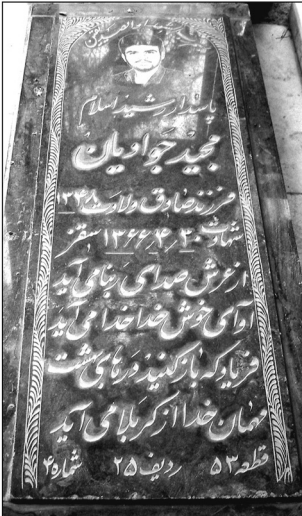 پاسدار رشید اسلام
مجید جوادیان
فرزند صادق ولادت ۱۳۳۸
شهادت ۳۰_۴_۱۳۶۶ سقز
از عرش صدای ربنا می آید
آوای خوش خدا خدا می آید
فریاد که باز کنید درهای بهشت
مهمان خدا از کربلا می آید
قطعه ۵۳ ردیف ۲۵ شماره ۴